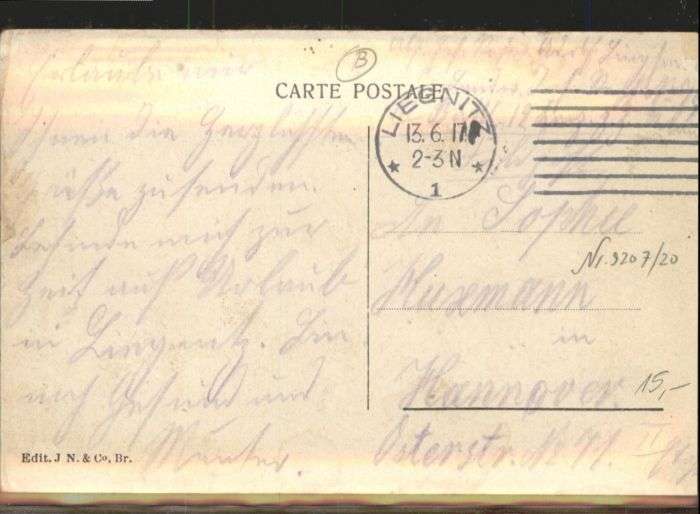 CARTE POSTALE
B
LIEGNITZ
13.6.17
2-3 N
1
Erlaube mir
Ihnen die herzlichsten
Grüße zu senden.
Befinde mich zur
Zeit auf Urlaub
in Liegnitz. Bin
noch gesund und
Munter.
An Sophie
Huxmann
in
Hannover
Osterstr. No 71. II
Nr. 9207/20
15,-
Edit. J N. & Co, Br.